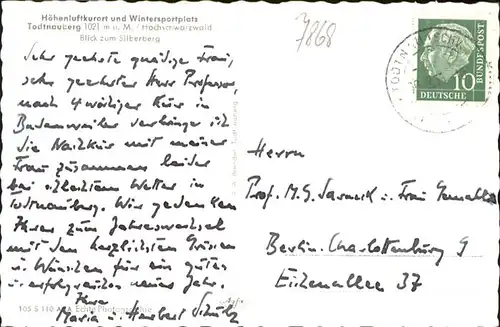 Höhenluftkurort und Wintersportplatz
Todtnauberg 1021 m ü. M. / Hochschwarzwald
Blick zum Silberberg
7868
Sehr geehrte gnädige Frau,
sehr geehrter Herr Professor,
nach 4 wöchiger Kur in
Badenweiler verbringe ich
die Nachkur mit meiner
Frau zusammen leider
bei schlechtem Wetter in
Todtnauberg. Wir gedenken
Ihrer zum Jahreswechsel
mit den herzlichsten Grüssen
u. Wünschen für ein gutes
u. erfolgreiches neues Jahr.
Ihre
Maria u. Herbert Schulz
105 S 110 Echte Photographie
10
DEUTSCHE BUNDESPOST
Herrn
Prof. M.G. u. Frau Gemahlin
Berlin-Charlottenburg 9
Eichenallee 37